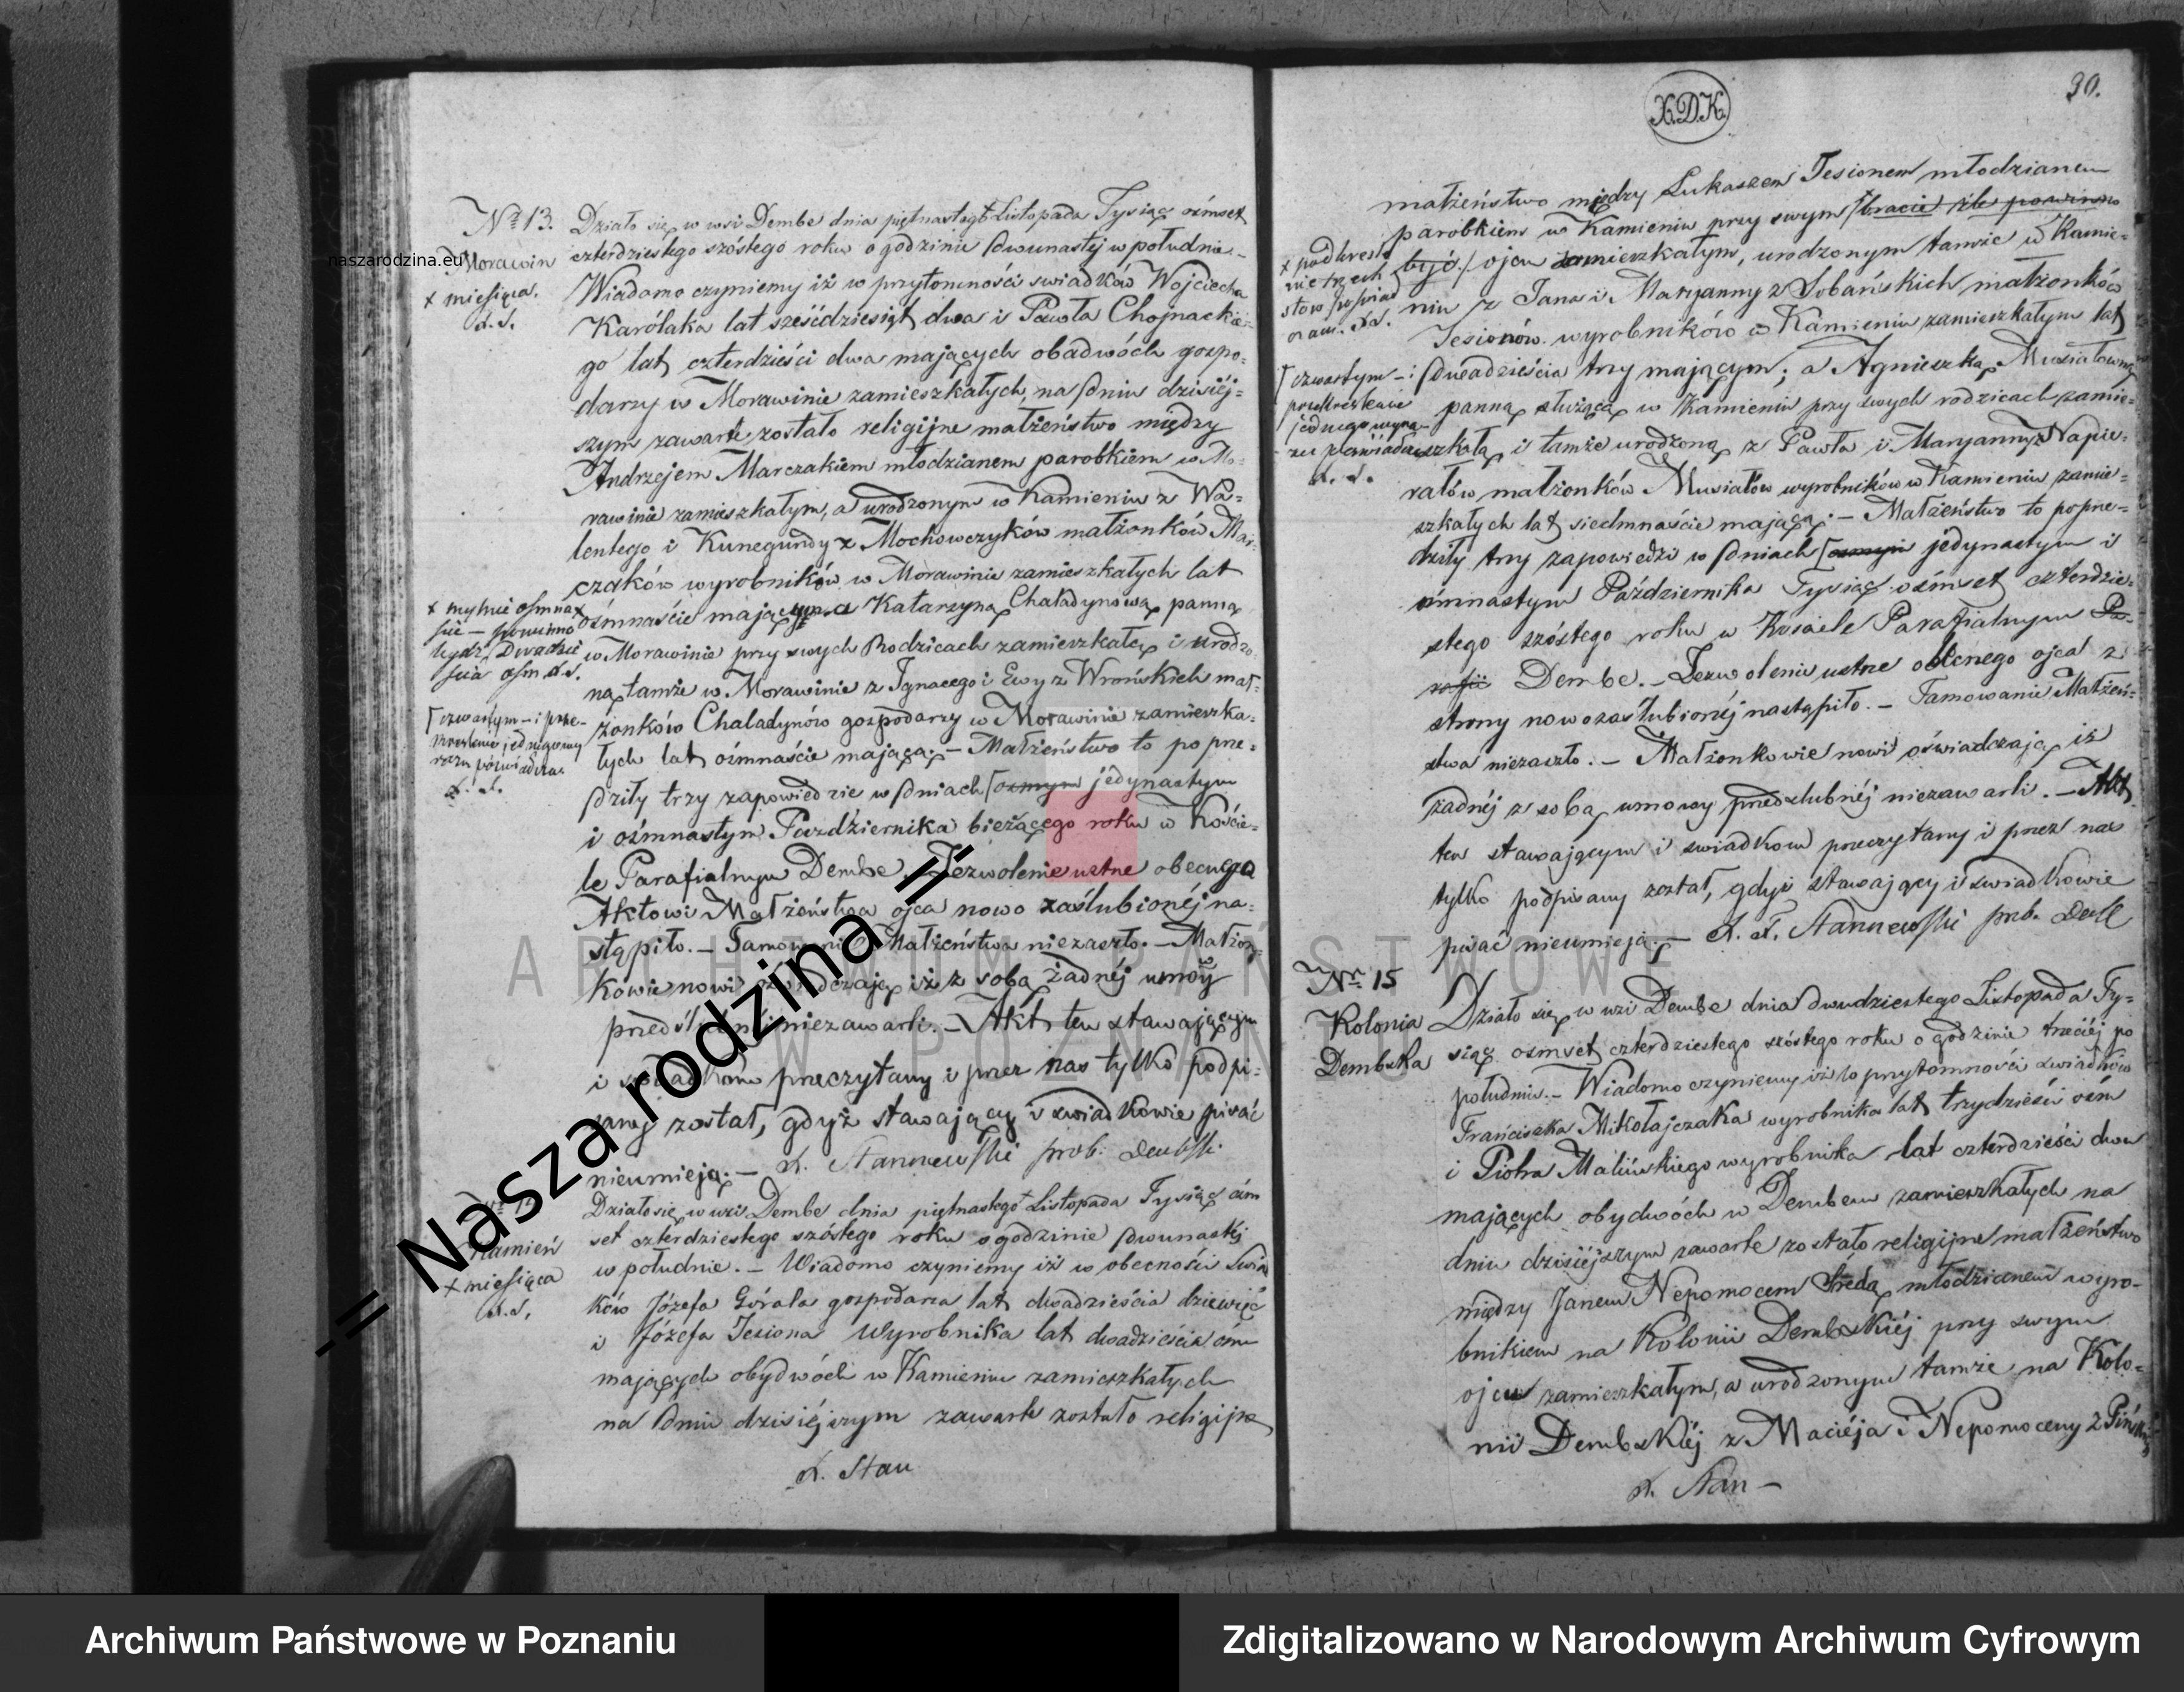 No 13.
Morawin
x miesiąca.
Działo się w wsi Dembe dnia piętnastego Listopada Tysiąc ośmset
czterdziestego szóstego roku o godzinie dwunastej w południe. –
Wiadomo czyniemy iż w przytomności swiadków Wojciecha
Karólaka lat sześćdziesiąt dwa i Pawła Chojnackie-
go lat czterdzieści dwa mających obadwóch gospo-
darzy w Morawinie zamieszkałych, na dniu dzisiéj-
szym zawarte zostało religijne małżeństwo między
Andrzejem Marczakiem młodzianem parobkiem w Mo-
rawinie zamieszkałym, a urodzonym w Kamieniu z Wa-
lentego i Kunegundy z Mochowczyków małżonków Mar-
czaków wyrobników w Morawinie zamieszkałych lat
x mylnie osmna-
ście – powinno
bydź Dwadzie
ścia osm
ośmnaście mającym a Katarzyną Chaładynową panną
w Morawinie przy swych Rodzicach zamieszkałą i urodzo-
ną tamże w Morawinie z Ignacego i Ewy z Wrońskich mał-
żonków Chaladynów gospodarzy w Morawinie zamieszka-
łych lat ośmnaście mającą; – Małżeństwo to poprze-
czwartym – i prze-
kreślenie jednego wy
razu poświadcza
dziły trzy zapowiedzie w dniach ósmym jedynastym
i ośmnastym Października bieżącego roku w Koście-
le Parafialnym Dembe. Zezwolenie ustne obecnego
Aktowi Małżeństwa ojca nowo zaślubionéj na-
stąpiło. – Tamowanie Małżeństwa niezaszło. – Małżon-
kowie nowi oświadczają iż z sobą żadnéj umowy
przedślubnéj niezawarli. – Akt ten stawającym
i świadkom przeczytany i przez nas tylko podpi-
sany został, gdyż stawający i swiadkowie pisać
nieumieją. – X. Stannewski prob. Dembski
Kamień
x miesiąca
Działo się w wsi Dembe dnia piętnastego Listopada Tysiąc ośm
set czterdziestego szóstego roku o godzinie dwunastej
w południe. – Wiadomo czyniemy iż w obecności Świad
ków Józefa Górala gospodarza lat dwadzieścia dziewięć
i Józefa Jesiona Wyrobnika lat dwadzieścia ośm
mających obydwóch w Kamieniu zamieszkałych
na dniu dzisiéjszym zawarte zostało religijne
X. Stan
X.D.K.
30.
małżeństwo między Łukaszem Jesionem młodzianem
parobkiem w Kamieniu przy swym bracie źle powinno
być ojcu zamieszkałym, urodzonym tamże w Kamie-
niu z Jana i Maryanny z Sobańskich małżonków
Jesionów wyrobników w Kamieniu zamieszkałym lat
czwartym – i
przekreślenie
jednego wyra-
zu poświadcza
dwadzieścia trzy mającym; a Agnieszką Musiałowną
panną służącą w Kamieniu przy swych rodzicach zamie-
szkałą i tamże urodzoną z Pawła i Maryanny z Napie-
rałów małżonków Musiałów wyrobników w Kamieniu zamie-
szkałych lat siedmnaście mającą. – Małżeństwo to poprze-
dziły trzy zapowiedzi w dniach ósmym jedynastym i
ośmnastym Października Tysiąc ośmset czterdzie-
stego szóstego roku w Kosciele Parafialnym Pa-
rafii Dembe. – Zezwolenie ustne obecnego ojca z
strony nowozaślubionéj nastąpiło. – Tamowanie Małżeń-
stwa niezaszło. – Małżonkowie nowi oświadczają iż
żadnéj z sobą umowy przedslubnéj niezawarli. – Akt
ten stawającym i swiadkom przeczytany i przez nas
tylko podpisany został, gdyż stawający i swiadkowie
pisać nieumieją. – X. Stannewski prob. Demb
Nr 15
Kolonia
Dembska
Działo się w wsi Dembe dnia dwudziestego Listopada Ty-
siąc osmset czterdziestego szóstego roku o godzinie trzeciéj po
południu. – Wiadomo czyniemy iż w przytomności swiadków
Franciszka Mikołajczaka wyrobnika lat trzydzieści ośm
i Piotra Malińskiego wyrobnika lat czterdzieści dwa
mających obydwóch w Dembem zamieszkałych na
dniu dzisiéjszym zawarte zostało religijne małżeństwo
między Janem Nepomocem Sredą młodzianem wyro-
bnikiem na Kolonii Dembskiéj przy swym
ojcu zamieszkałym, a urodzonym tamże na Kolo-
nii Dembskiéj z Maciéja i Nepomoceny z
X. Stan –
naszarodzina.eu
-= Nasza rodzina =-
ARCHIWUM PAŃSTWOWE
W POZNANIU
Archiwum Państwowe w Poznaniu
Zdigitalizowano w Narodowym Archiwum Cyfrowym